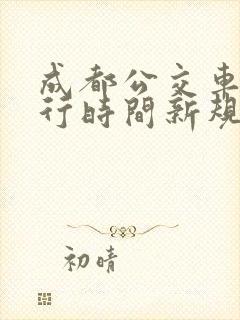 成都公交車
行時間新規
初晴